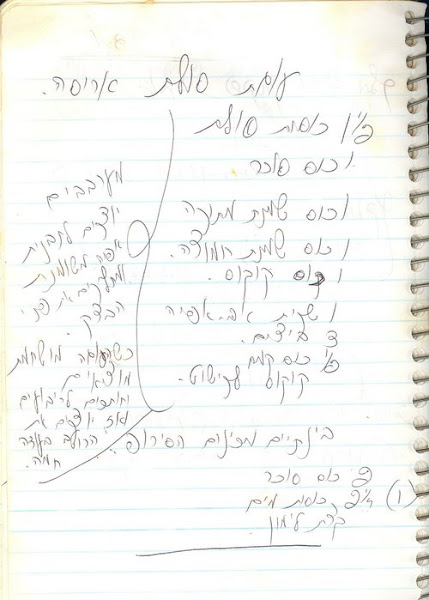 עוגת סולת אריסה.
2 1/2 כוסות סולת
1 כוס סוכר
1 כוס שמנת מתוקה
1 כוס שמנת חמוצה.
1 כוס קוקוס.
1 שקית א.פ. אפיה
3 ביצים.
1/2 כוס קמח
קוקוס לקישוט.
מערבבים
יוצקים לתבנית
אפיה משומנת
ומחליקים את פני
הבצק.
כשהעוגה מושחמת
מוציאים
וחותכים לריבועים
ואז יוצקים את
הרוטב בעודה
חמה.
בינתיים מכינים הסירופ:
כוס סוכר
(1) כוסות מים
לימון